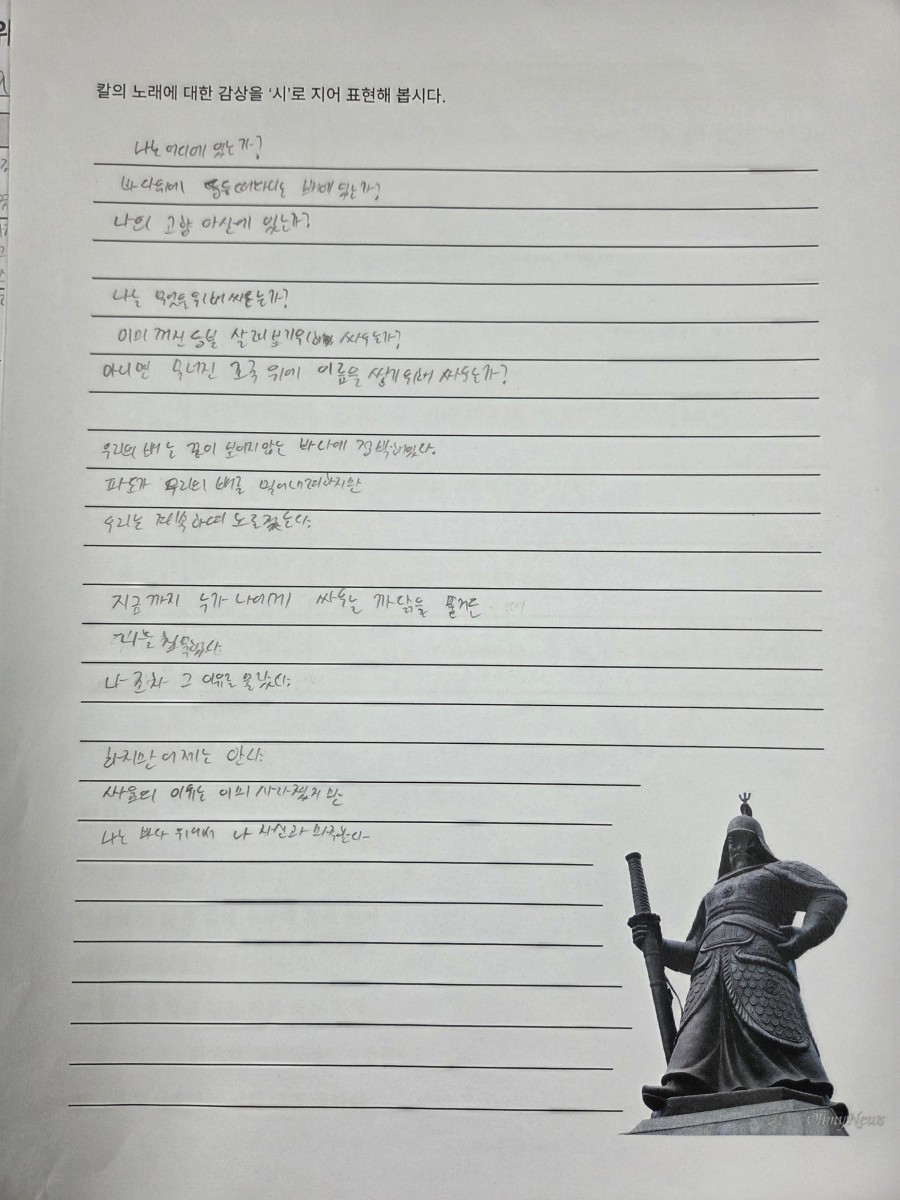 위
칼의 노래에 대한 감상을 '시'로 지어 표현해 봅시다.
나는 어디에 있는가?
바다위에 떠다니는 배에 있는가?
나의 고향 아산에 있는가?
나는 무엇을 위해 싸우는가?
이미 꺼진 등불 살려보기위해 싸우는가?
아니면 무너진 조국 위에 이름을 쌓기위해 싸우는가?
우리의 배는 끝이 보이지않는 바다에 정박해있다.
파도가 우리의 배를 밀어내려하지만
우리는 계속하여 노를 젓는다.
지금까지 누가 나에게 싸우는 까닭을 물거든
나는 침묵했다.
나조차 그 이유를 몰랐다.
하지만 이제는 안다.
싸움의 이유는 이미 사라졌지만
나는 바다 위에서 나 자신과 마주본다
OhmyNews